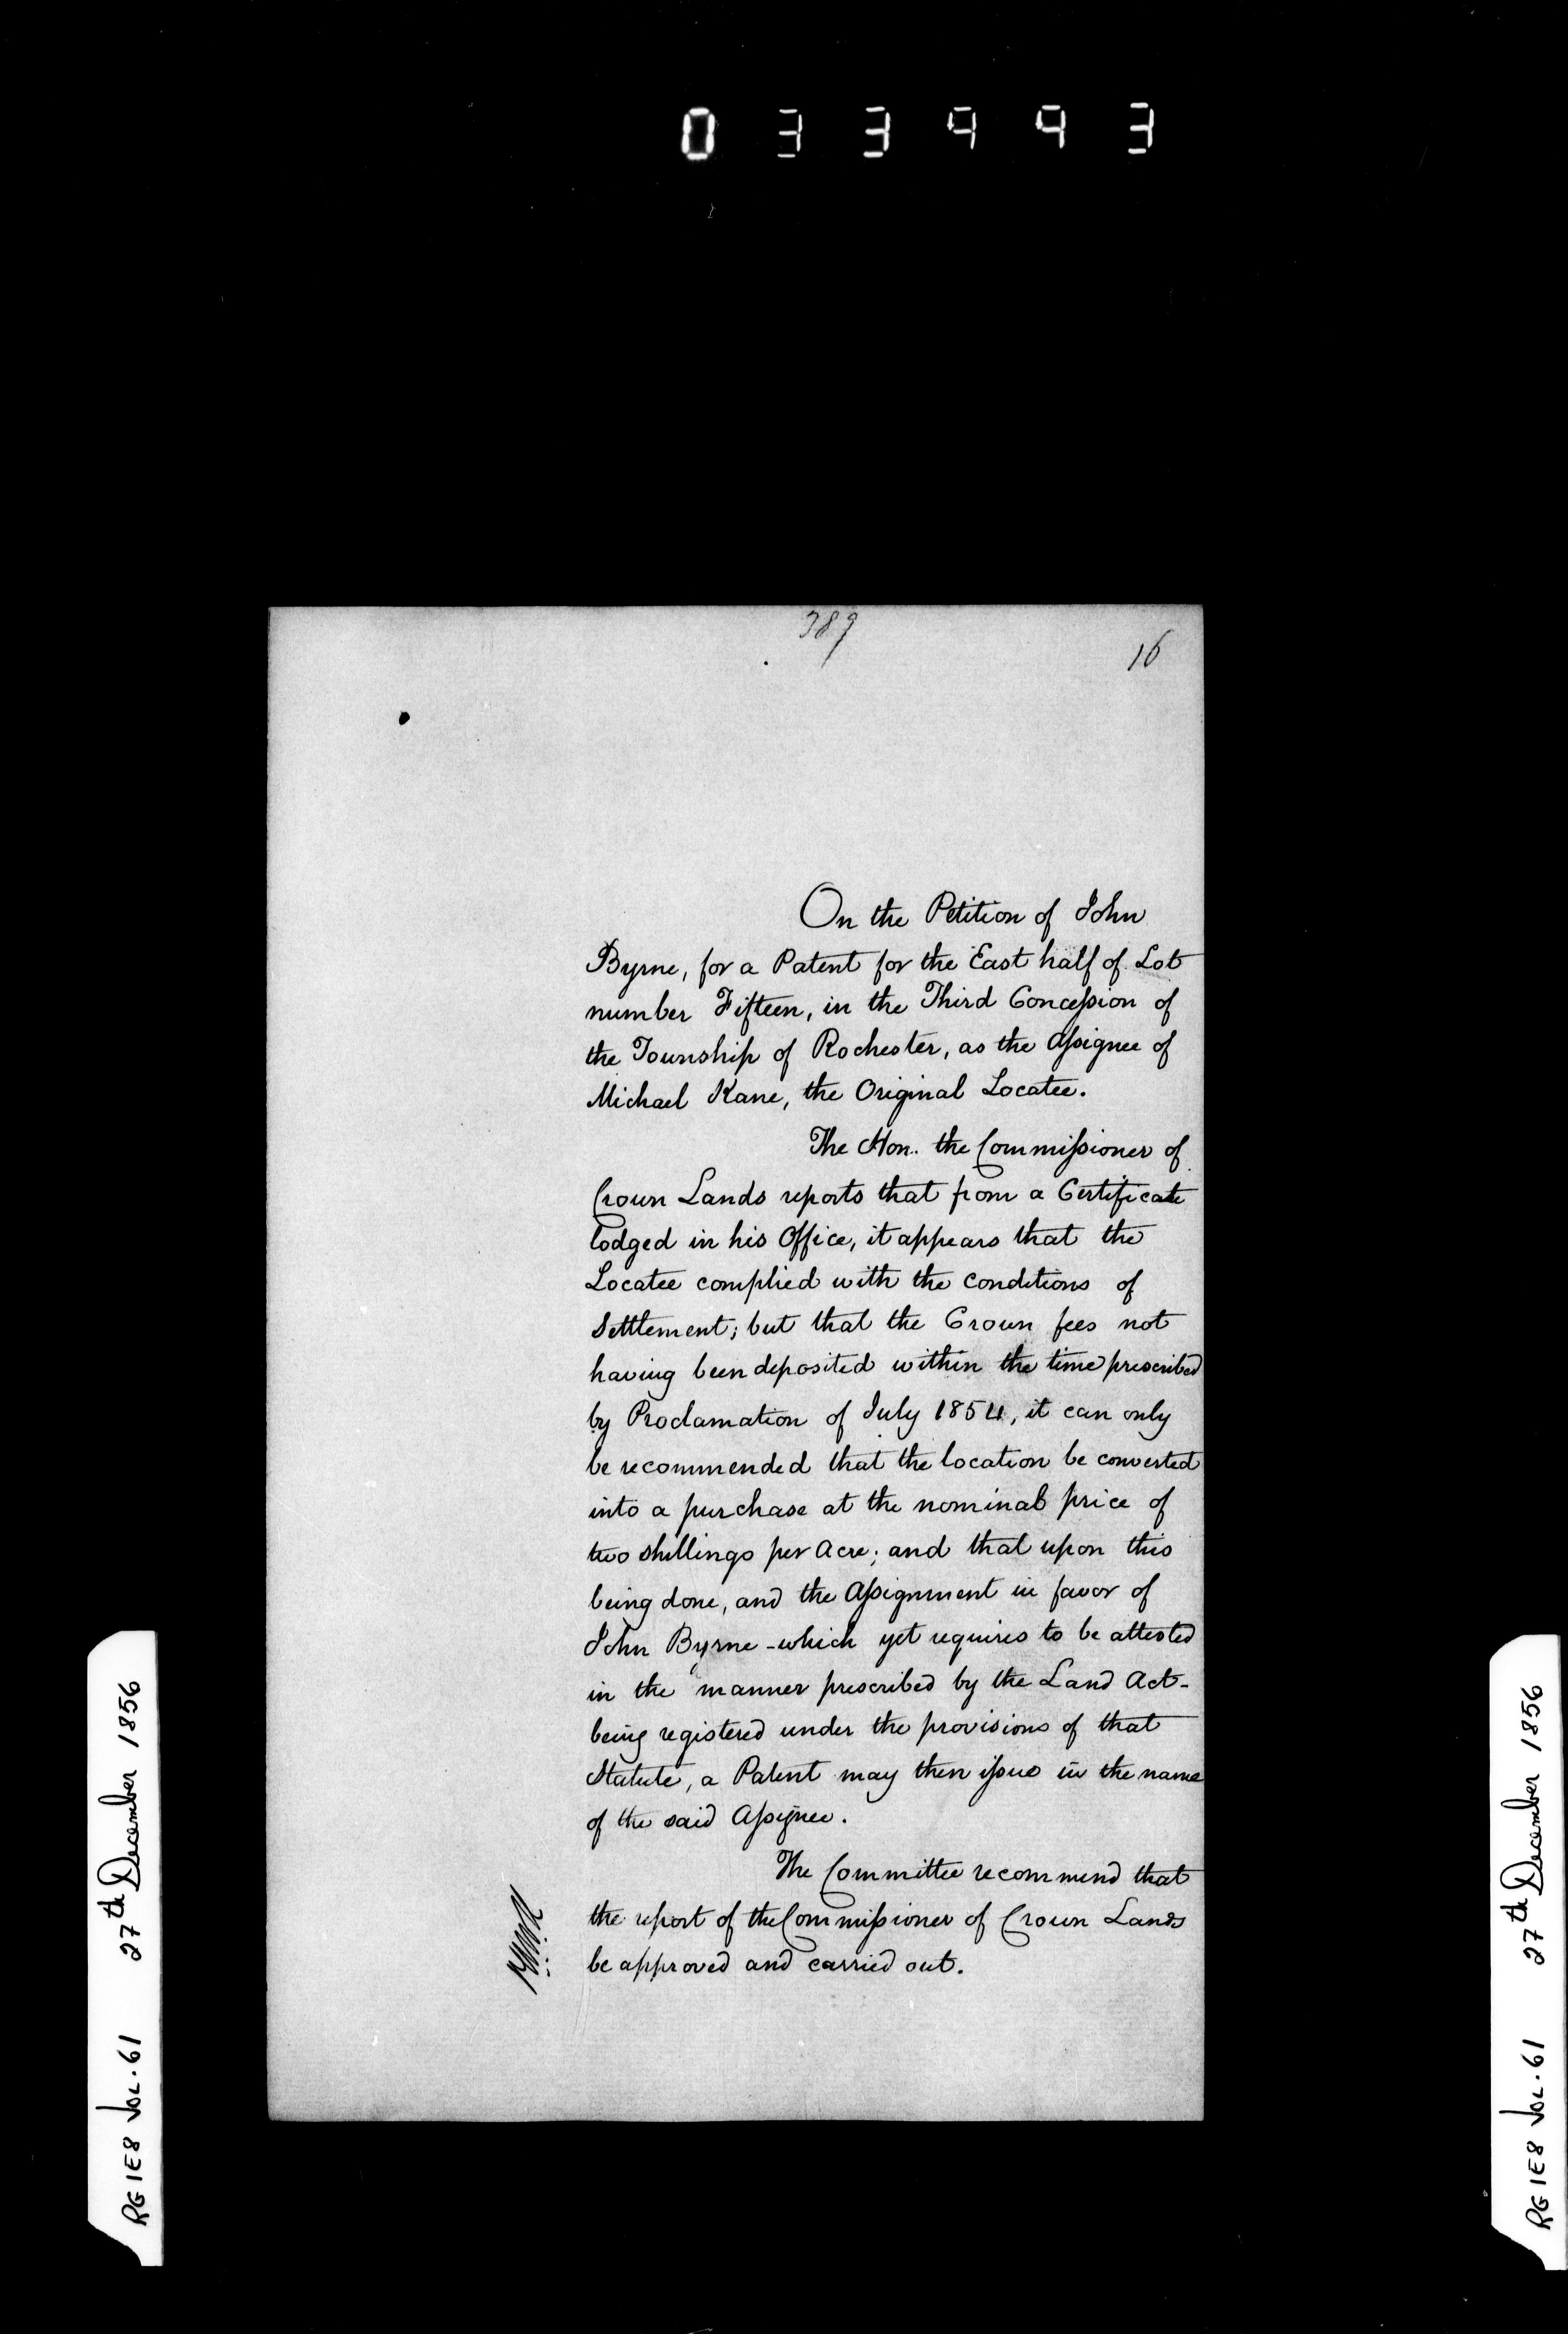 033993
389
16
On the Petition of John
Byrne, for a Patent for the East half of Lot
number Fifteen, in the Third Concession of
the Township of Rochester, as the Assignee of
Michael Kane, the Original Locatee.
The Hon. the Commissioner of
Crown Lands reports that from a Certificate
lodged in his Office, it appears that the
Locatee complied with the conditions of
Settlement; but that the Crown fees not
having been deposited within the time prescribed
by Proclamation of July 1854, it can only
be recommended that the location be converted
into a purchase at the nominal price of
two shillings per Acre; and that upon this
being done, and the Assignment in favor of
John Byrne - which yet requires to be attested
in the manner prescribed by the Land Act -
being registered under the provisions of that
Statute, a Patent may then issue in the name
of the said Assignee.
The Committee recommend that
the report of the Commissioner of Crown Lands
be approved and carried out.
RG 1E8 VOL. 61 27th December 1856
RG 1E8 VOL. 61 27th December 1856